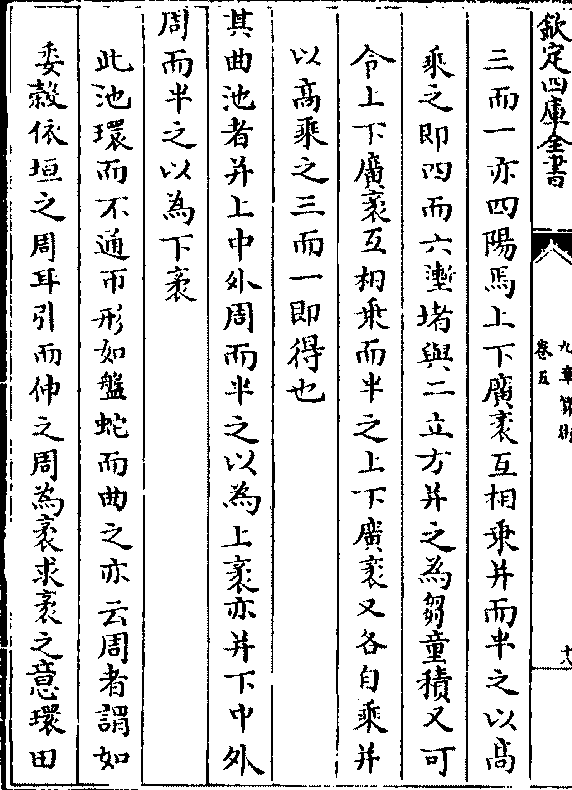 欽定四庫全書
九章算術
卷五
十八
三而一亦四陽馬上下廣袤互相乗并而半之以高
乗之即四而六漸堵與二立方并之為芻童積又可
令上下廣袤互相乗而半之上下廣袤又各自乗并
以高乗之三而一即得也
其曲池者并上中外周而半之以為上袤亦并下中外
周而半之以為下袤
此池環而不通帀形如盤蛇而曲之亦云周者謂如
委榖依垣之周耳引而伸之周為袤求袤之意環田